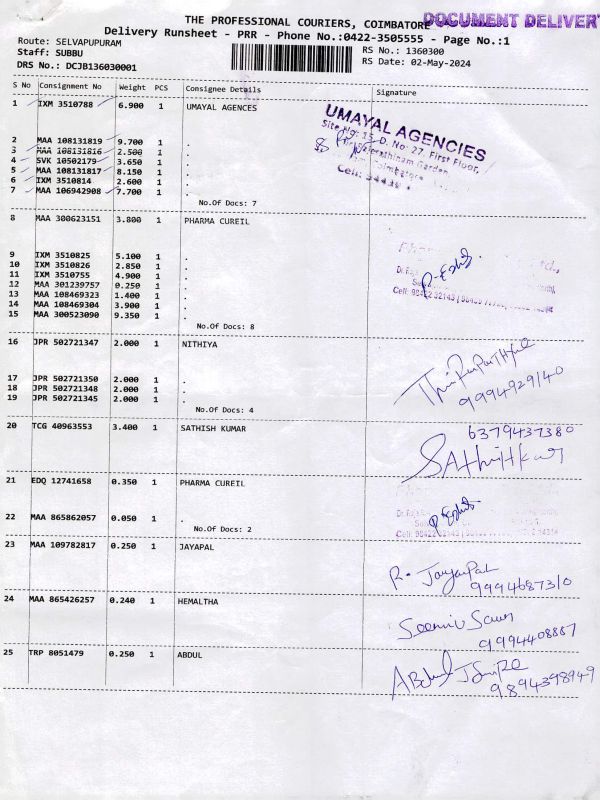 THE PROFESSIONAL COURIERS, COIMBATORE
DOCUMENT DELIVER
Delivery Runsheet - PRR - Phone No.:0422-3505555 - Page No.:1
Route: SELVAPUPURAM
Staff: SUBBU
DRS No.: DCJB136030001
RS No.: 1360300
RS Date: 02-May-2024
S No Consignment No Weight PCS Consignee Details Signature
1 IXM 3510788 6.900 1 UMAYAL AGENCES
UMAYAL AGENCIES
Site No: 15, D. No: 27, First Floor,
Garden,
Coimbatore
Cell:
2 MAA 108131819 9.700 1 .
3 MAA 108131816 2.500 1 .
4 SVK 10502179 3.650 1 .
5 MAA 108131817 8.150 1 .
6 IXM 3510814 2.600 1 .
7 MAA 106942908 7.700 1 .
No.Of Docs: 7
8 MAA 300623151 3.800 1 PHARMA CUREIL
9 IXM 3510825 5.100 1 .
10 IXM 3510826 2.850 1 .
11 IXM 3510755 4.900 1 .
12 MAA 301239757 0.250 1 .
13 MAA 108469323 1.400 1 .
14 MAA 108469304 3.900 1 .
15 MAA 300523090 9.350 1 .
No.Of Docs: 8
16 JPR 502721347 2.000 1 NITHIYA
9994929140
17 JPR 502721350 2.000 1 .
18 JPR 502721348 2.000 1 .
19 JPR 502721345 2.000 1 .
No.Of Docs: 4
20 TCG 40963553 3.400 1 SATHISH KUMAR
6379437380
21 EDQ 12741658 0.350 1 PHARMA CUREIL
22 MAA 865862057 0.050 1 .
No.Of Docs: 2
23 MAA 109782817 0.250 1 JAYAPAL
R. JayaPal
9994687310
24 MAA 865426257 0.240 1 HEMALTHA
9994408887
25 TRP 8051479 0.250 1 ABDUL
9894398949